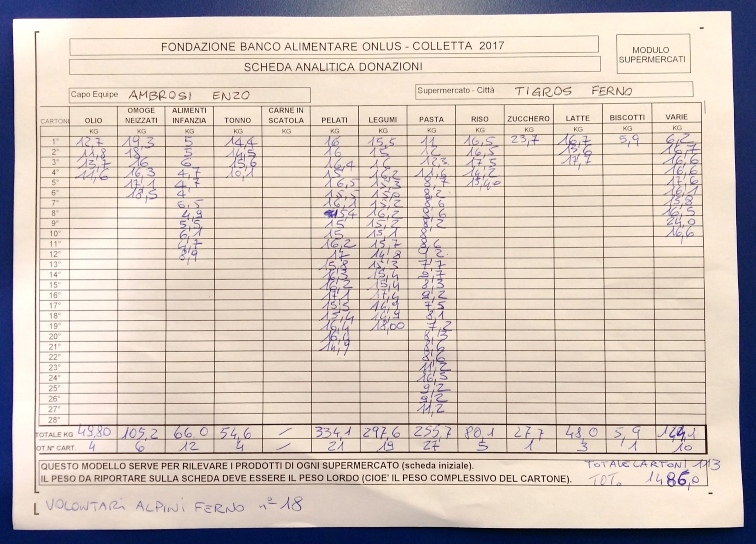 FONDAZIONE BANCO ALIMENTARE ONLUS - COLLETTA 2017
MODULO SUPERMERCATI
SCHEDA ANALITICA DONAZIONI
Capo Equipe AMBROSI ENZO Supermercato - Città TIGROS FERNO
CARTONI OLIO OMOGE NEIZZATI ALIMENTI INFANZIA TONNO CARNE IN SCATOLA PELATI LEGUMI PASTA RISO ZUCCHERO LATTE BISCOTTI VARIE
KG KG KG KG KG KG KG KG KG KG KG KG KG
1° 12,7 14,3 5 14,4 16 15,5 11 16,5 23,7 16,7 5,9 6,2
2° 11,8 5 16 15 16,7
3° 13,7 16 6 12,3 17,5 16,6
4° 11,6 16,3 4,7 10,1 16,2 11,6 16,2 16,6
5° 17,1 4,7 16,5 8,7 17,6
6° 18,5 8,2 16,1
7° 6,5 16,1 15,2 8,6 15,8
8° 4,9 15,4 16,2 8,6 16,5
9° 5,5 15 15,2 8,2 24,0
10° 6,1 15 16,6
11° 16,2 15,7 8,6
12° 8,9 17 14,8 9,2
13° 7,7
14° 15,4 9,7
15° 16,2 15,4 8,3
16° 17,1 17,4 9,2
17° 15,5 16,9 7,5
18° 15,4 14,9 8,1
19° 16,4 18,00 7,2
20°
21° 14,9 8,6
22° 8,6
23° 11,2
24° 16,5
25° 9,2
26° 9,2
27° 11,2
28°
TOTALE KG 49,80 105,2 66,0 54,6 / 334,1 297,6 255,7 80,1 27,7 48,0 5,9
TOT.N° CART. 4 6 12 4 / 21 19 27 5 1 3 1 10
QUESTO MODELLO SERVE PER RILEVARE I PRODOTTI DI OGNI SUPERMERCATO (scheda iniziale). TOTALE CARTONI 113
IL PESO DA RIPORTARE SULLA SCHEDA DEVE ESSERE IL PESO LORDO (CIOE' IL PESO COMPLESSIVO DEL CARTONE). TOT. 1486,0
VOLONTARI ALPINI FERNO n° 18